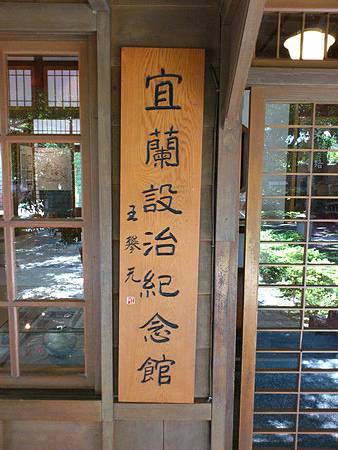 宜蘭設治紀念館
王𤩹元